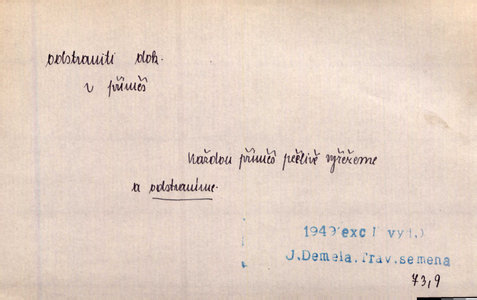 odstraniti dok.
v příměs
každou příměs pečlivě vyřežeme
a odstraníme.
1949 exc
J.Demela.Trav.semena
73,9